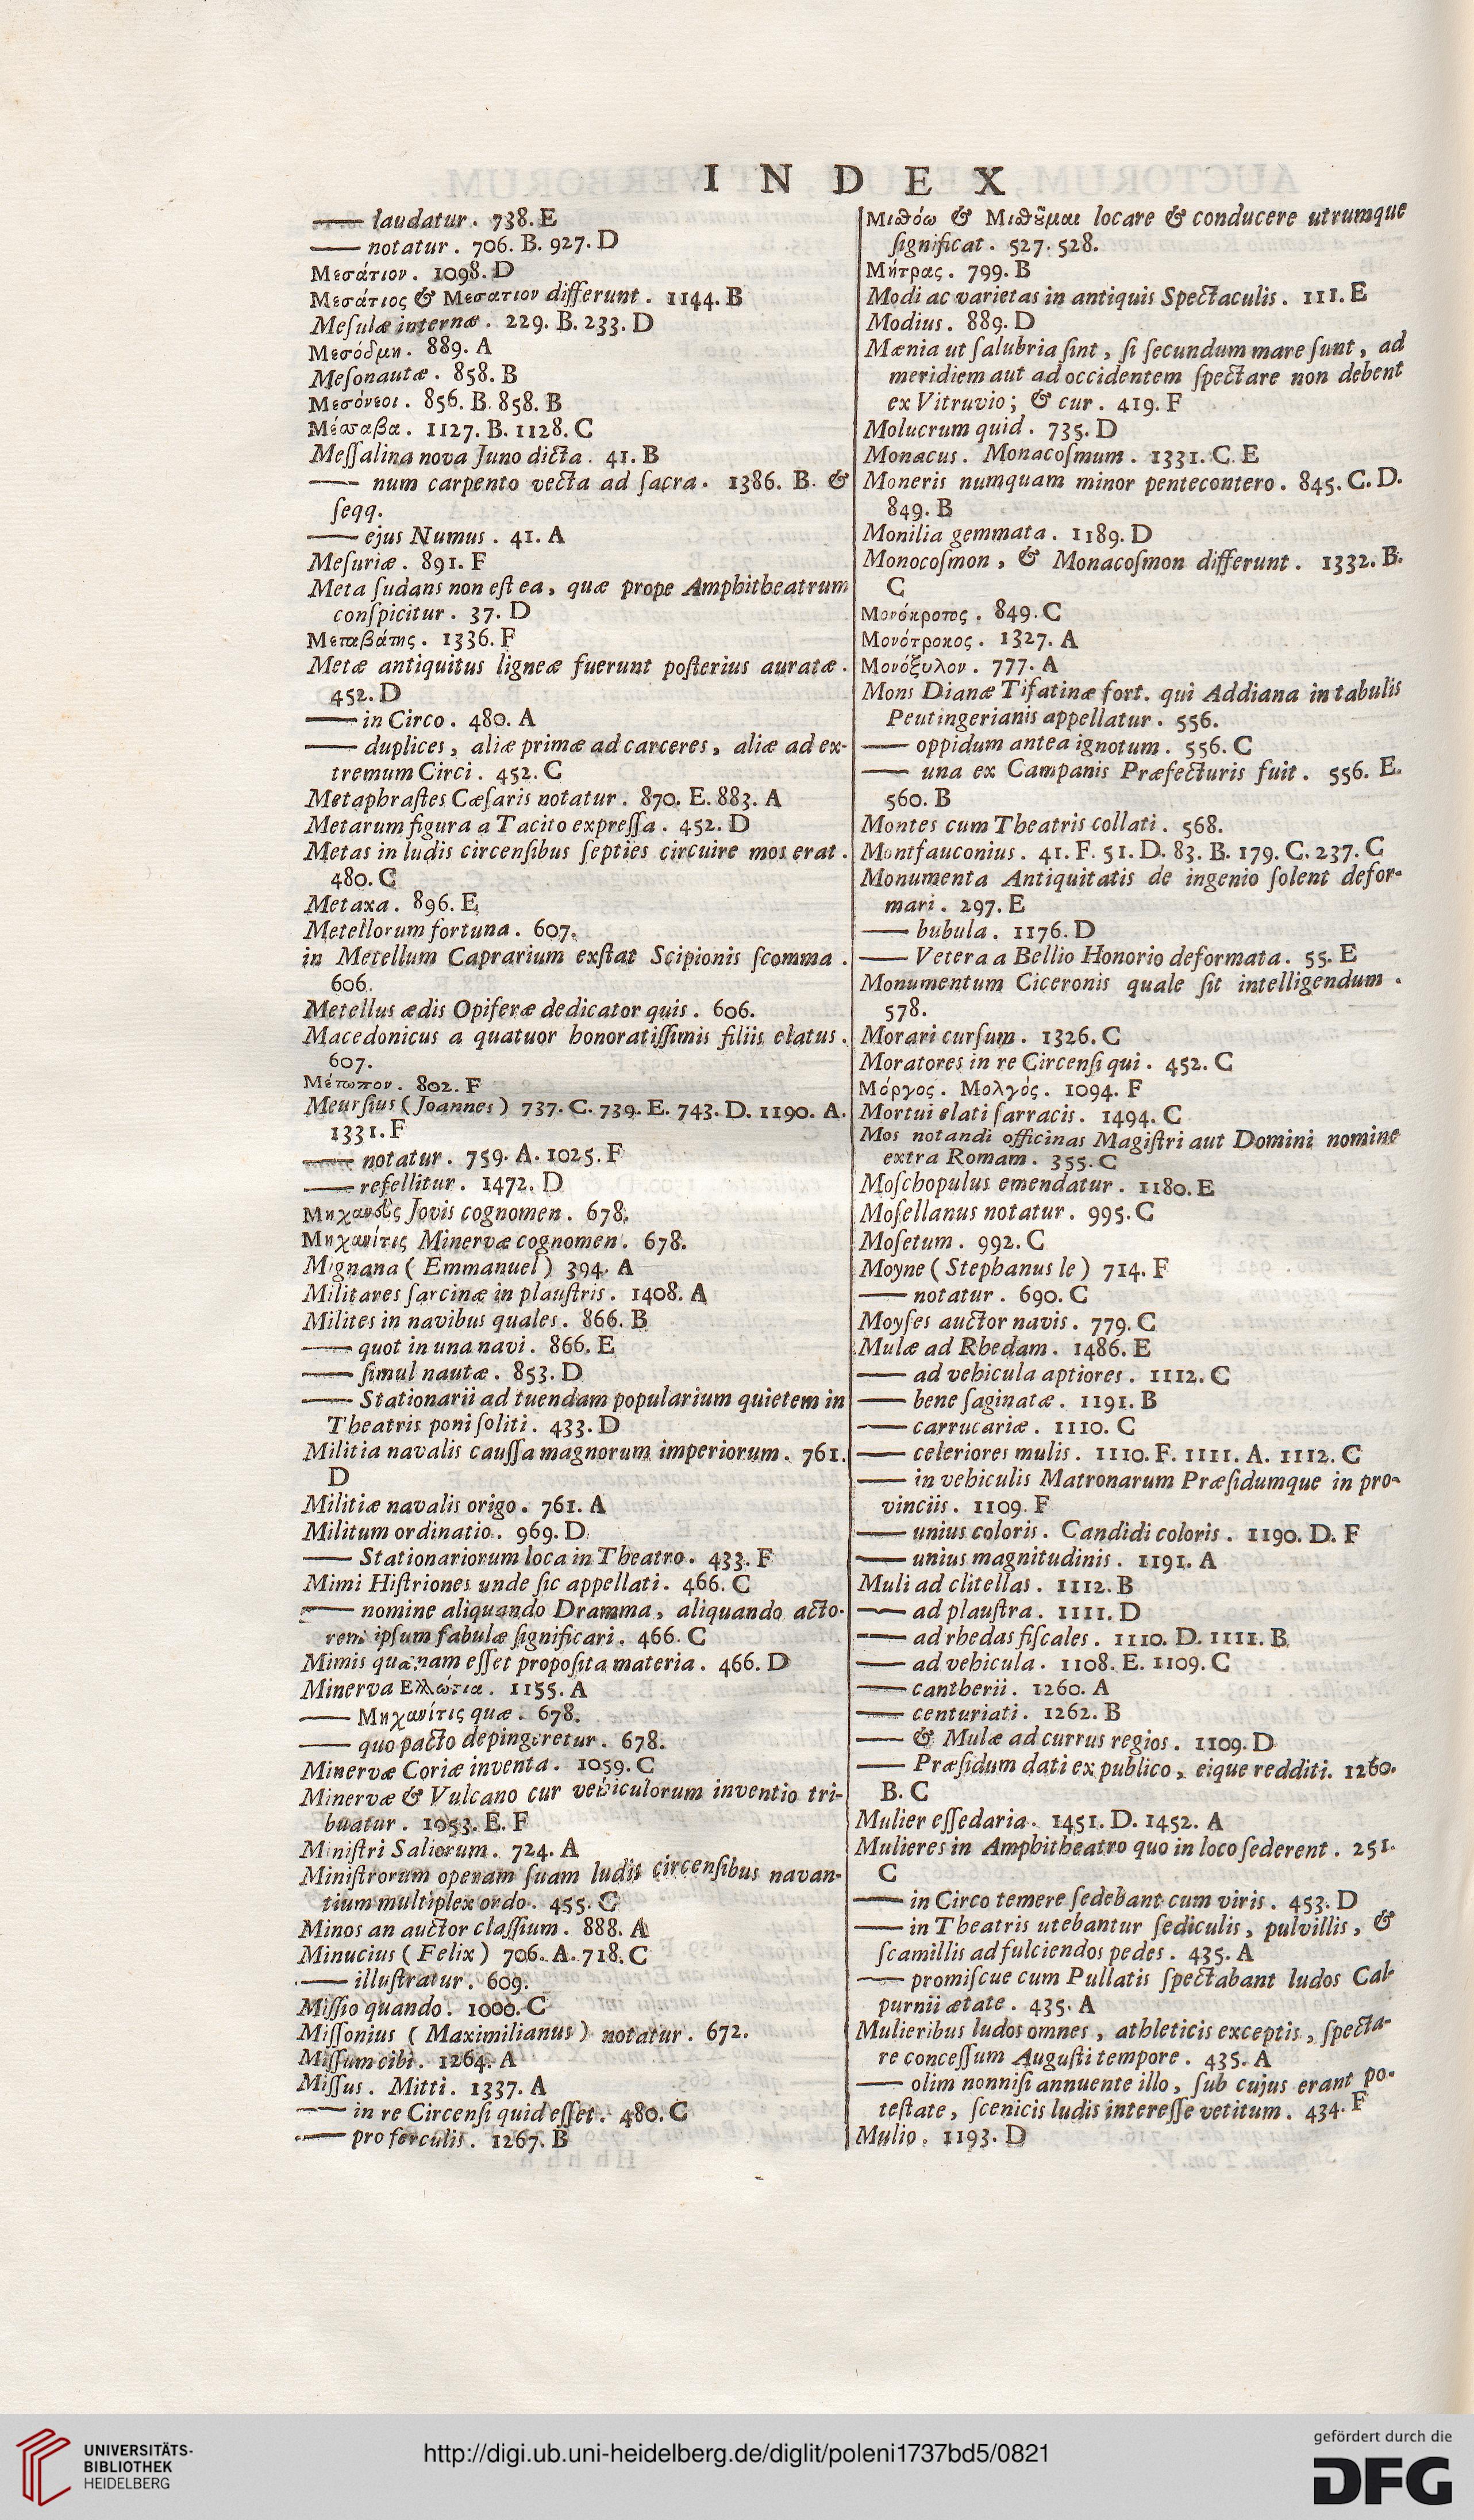 I N D E X
—— laudatur. 738. E
—— notatur. 706. B. 927. D
Μεσάτιον. 1098. D
Μεσάτιος & Μεσατιον differunt. 1144. B
Meſulæ internæ. 229. B. 233. D
Μεσόδμη. 889. A
Meſonautæ. 858. B
Μεσόνεοι. 856. B. 858. B
Μέσσαβα. 1127. B. 1128. C
Meſſalina nova Juno dicta. 41. B
—— num carpento vecta ad ſacra. 1386. B. &
ſeqq.
—— ejus Numus. 41. A
Meſuriæ. 891. F
Meta ſudans non eſt ea, quæ prope Amphitheatrum
conſpicitur. 37. D
Μεταβάτης. 1336. F
Metæ antiquitus ligneæ fuerunt poſterius auratæ.
452. D
—— in Circo. 480. A
—— duplices, aliæ primæ ad carceres, aliæ ad ex-
tremum Circi. 452. C
Metaphraſtes Cæſaris notatur. 870. E. 883. A
Metarum figura a Tacito expreſſa. 452. D
Metas in ludis circenſibus ſepties circuire mos erat.
480. C
Metaxa. 896. E
Metellorum fortuna. 607.
in Metellum Caprarium exſtat Scipionis ſcomma.
606.
Metellus ædis Opiferæ dedicator quis. 606.
Macedonicus a quatuor honoratiſſimis filiis elatus.
607.
Μέτωπον. 802. F
Meurſius (Joannes) 737. C. 739. E. 743. D. 1190. A.
1331. F
—— notatur. 759. A. 1025. F
—— refellitur. 1472. D
Μηχανεὺς Jovis cognomen. 678.
Μηχανίτις Minervæ cognomen. 678.
Mignana (Emmanuel) 394. A
Militares ſarcinæ in plauſtris. 1408. A
Milites in navibus quales. 866. B
—— quot in una navi. 866. E
—— ſimul nautæ. 853. D
—— Stationarii ad tuendam popularium quietem in
Theatris poni ſoliti. 433. D
Militia navalis cauſſa magnorum imperiorum. 761.
D
Militiæ navalis origo. 761. A
Militum ordinatio. 969. D
—— Stationariorum loca in Theatro. 433. F
Mimi Hiſtriones unde ſic appellati. 466. C
—— nomine aliquando Dramma, aliquando acto-
rem ipſum fabulæ ſignificari. 466. C
Mimis quænam eſſet propoſita materia. 466. D
Minerva Ελλώτια. 1155. A
—— Μηχανίτις quæ. 678.
—— quo pacto depingeretur. 678.
Minervæ Coriæ inventa. 1059. C
Minervæ & Vulcano cur vehiculorum inventio tri-
buatur. 1053. E. F
Miniſtri Saliorum. 724. A
Miniſtrorum operam ſuam ludis circenſibus navan-
tium multiplex ordo. 455. C
Minos an auctor claſſium. 888. A
Minucius (Felix) 706. A. 718. C
—— illuſtratur. 609.
Miſſio quando. 1000. C
Miſſonius (Maximilianus) notatur. 672.
Miſſum cibi. 1264. A
Miſſus. Mitti. 1337. A
—— in re Circenſi quid eſſet. 480. C
—— pro ferculis. 1267. B
Μισθόω & Μισθȣ͂μαι locare & conducere utrumque
ſignificat. 527. 528.
Μήτρας. 799. B
Modi ac varietas in antiquis Spectaculis. 111. E
Modius. 889. D
Mænia ut ſalubria ſint, ſi ſecundum mare ſunt, ad
meridiem aut ad occidentem ſpectare non debent
ex Vitruvio; & cur. 419. F
Molucrum quid. 735. D
Monacus. Monacoſmum. 1331. C. E
Moneris numquam minor pentecontero. 845. C. D.
849. B
Monilia gemmata. 1189. D
Monocoſmon, & Monacoſmon differunt. 1332. B.
C
Μονόκροτος. 849. C
Μονότροκος. 1327. A
Μονόξυλον. 777. A
Mons Dianæ Tifatinæ fort. qui Addiana in tabulis
Peutingerianis appellatur. 556.
—— oppidum antea ignotum. 556. C
—— una ex Campanis Præfecturis fuit. 556. E.
560. B
Montes cum Theatris collati. 568.
Montfauconius. 41. F. 51. D. 83. B. 179. C. 237. C
Monumenta Antiquitatis de ingenio ſolent defor-
mari. 297. E
—— bubula. 1176. D
—— Vetera a Bellio Honorio deformata. 55. E
Monumentum Ciceronis quale ſit intelligendum.
578.
Morari curſum. 1326. C
Moratores in re Circenſi qui. 452. C
Μόργος. Μολγός. 1094. F
Mortui elati ſarracis. 1494. C
Mos notandi officinas Magiſtri aut Domini nomine
extra Romam. 355. C
Moſchopulus emendatur. 1180. E
Moſellanus notatur. 995. C
Moſetum. 992. C
Moyne (Stephanus le) 714. F
—— notatur. 690. C
Moyſes auctor navis. 779. C
Mulæ ad Rhedam. 1486. E
—— ad vehicula aptiores. 1112. C
—— bene ſaginatæ. 1191. B
—— carrucariæ. 1110. C
—— celeriores mulis. 1110. F. 1111. A. 1112. C
—— in vehiculis Matronarum Præſidumque in pro-
vinciis. 1109. F
—— unius coloris. Candidi coloris. 1190. D. F
—— unius magnitudinis. 1191. A
Muli ad clitellas. 1112. B
—— ad plauſtra. 1111. D
—— ad rhedas fiſcales. 1110. D. 1111. B
—— ad vehicula. 1108. E. 1109. C
—— cantherii. 1260. A
—— centuriati. 1262. B
—— & Mulæ ad currus regios. 1109. D
—— Præſidum dati ex publico, eique redditi. 1260.
B. C
Mulier eſſedaria. 1451. D. 1452. A
Mulieres in Amphitheatro quo in loco ſederent. 251.
C
—— in Circo temere ſedebant cum viris. 453. D
—— in Theatris utebantur ſediculis, pulvillis, &
ſcamillis ad fulciendos pedes. 435. A
—— promiſcue cum Pullatis ſpectabant ludos Cal-
purnii ætate. 435. A
Mulieribus ludos omnes, athleticis exceptis, ſpecta-
re conceſſum Auguſti tempore. 435. A
—— olim nonniſi annuente illo, ſub cujus erant po-
teſtate, ſcenicis ludis intereſſe vetitum. 434. F
Mulio. 1193. D
UNIVERSITÄTS-
BIBLIOTHEK
HEIDELBERG
http://digi.ub.uni-heidelberg.de/diglit/poleni1737bd5/0821
gefördert durch die
DFG